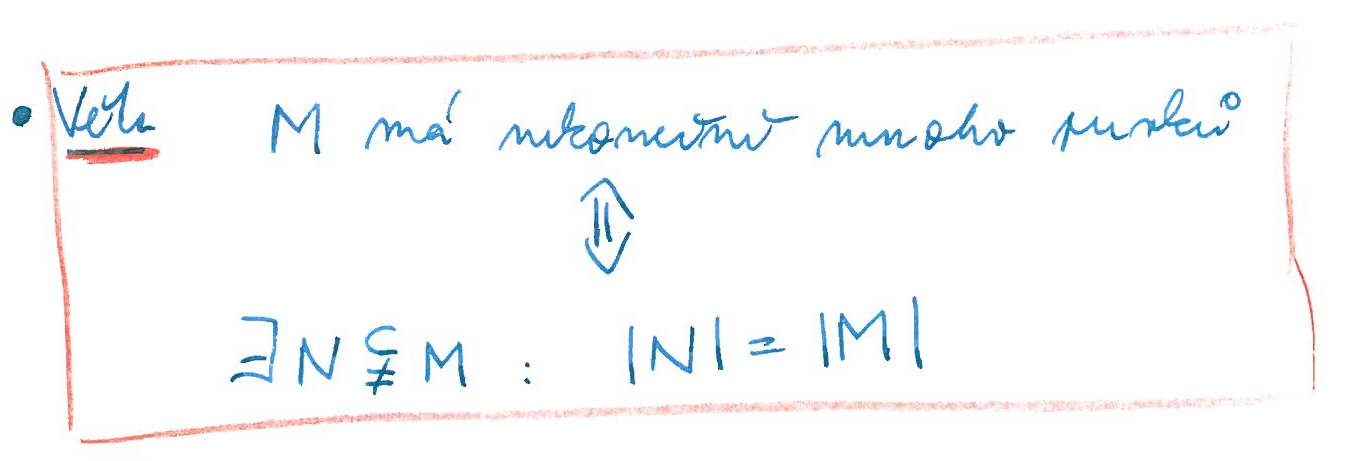 • Věta M má nekonečně mnoho prvků
⇕
∃ N ⊊ M : |N| = |M|